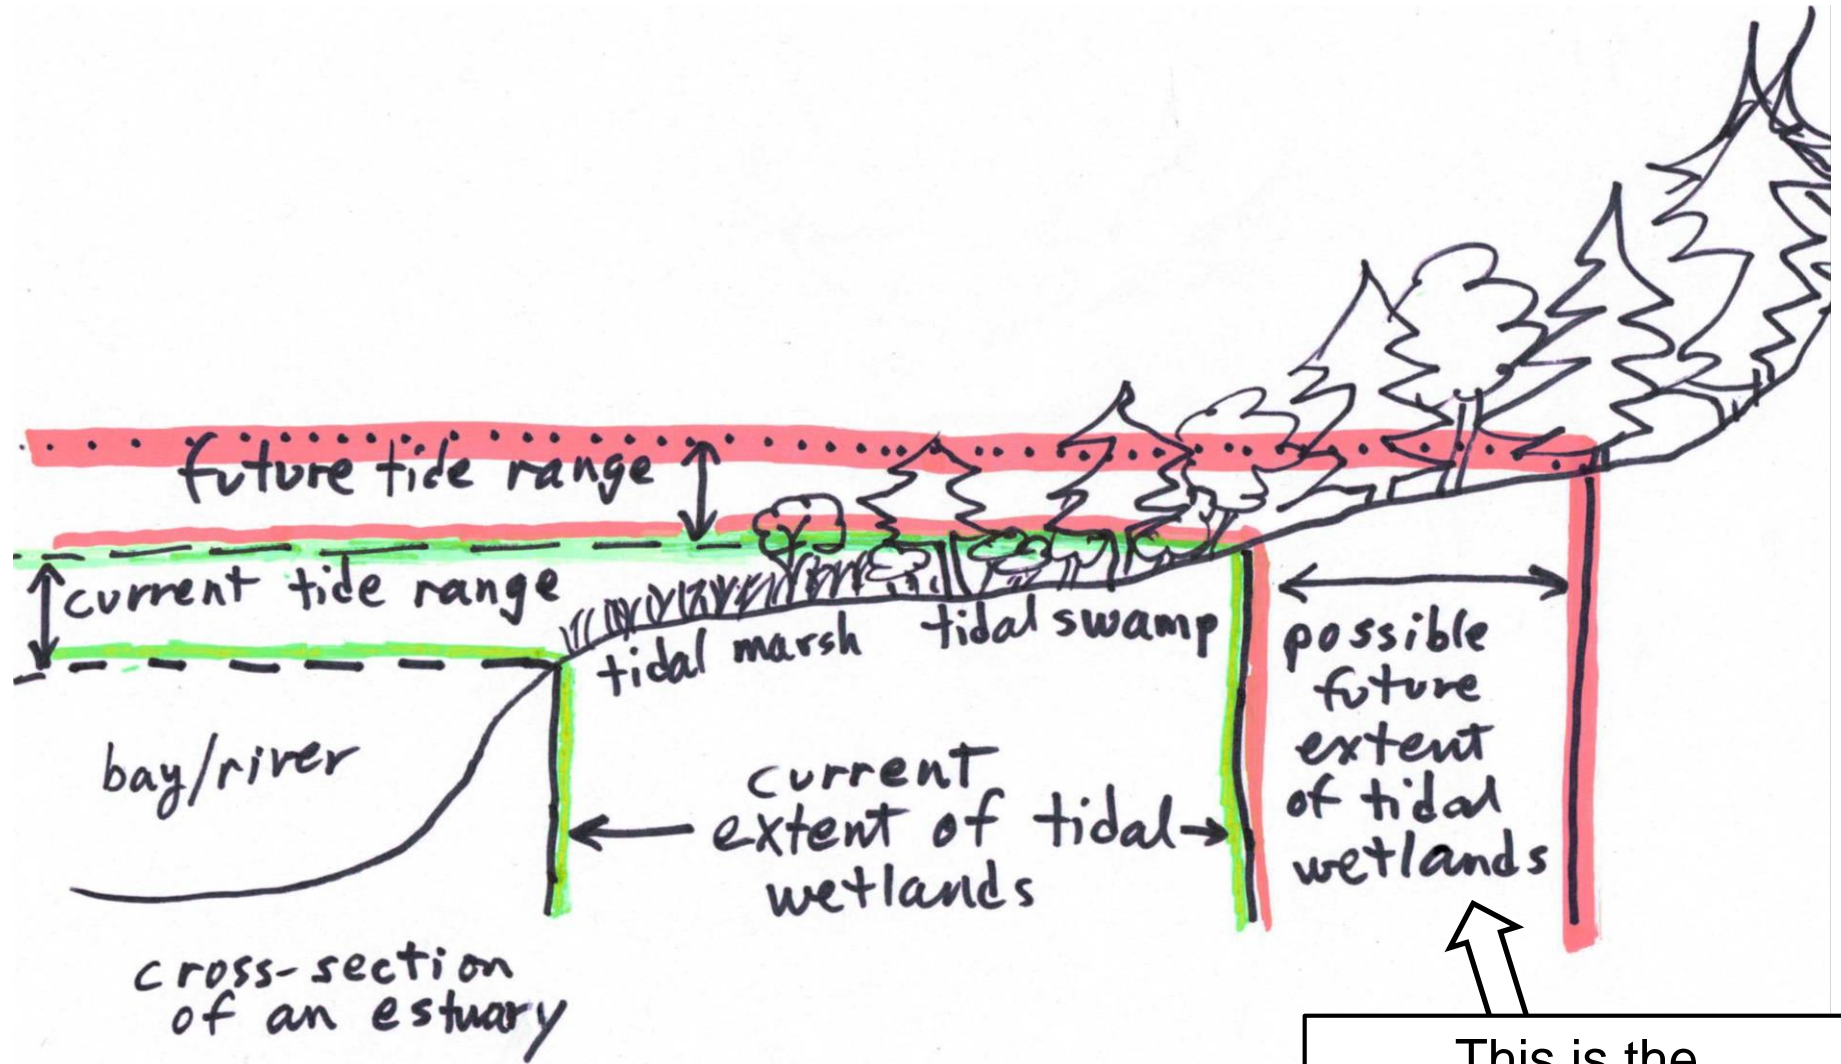 future tide range
current tide range
tidal marsh
tidal swamp
bay/river
current
extent of tidal
wetlands
possible
future
extent
of tidal
wetlands
cross-section
of an estuary
This is the